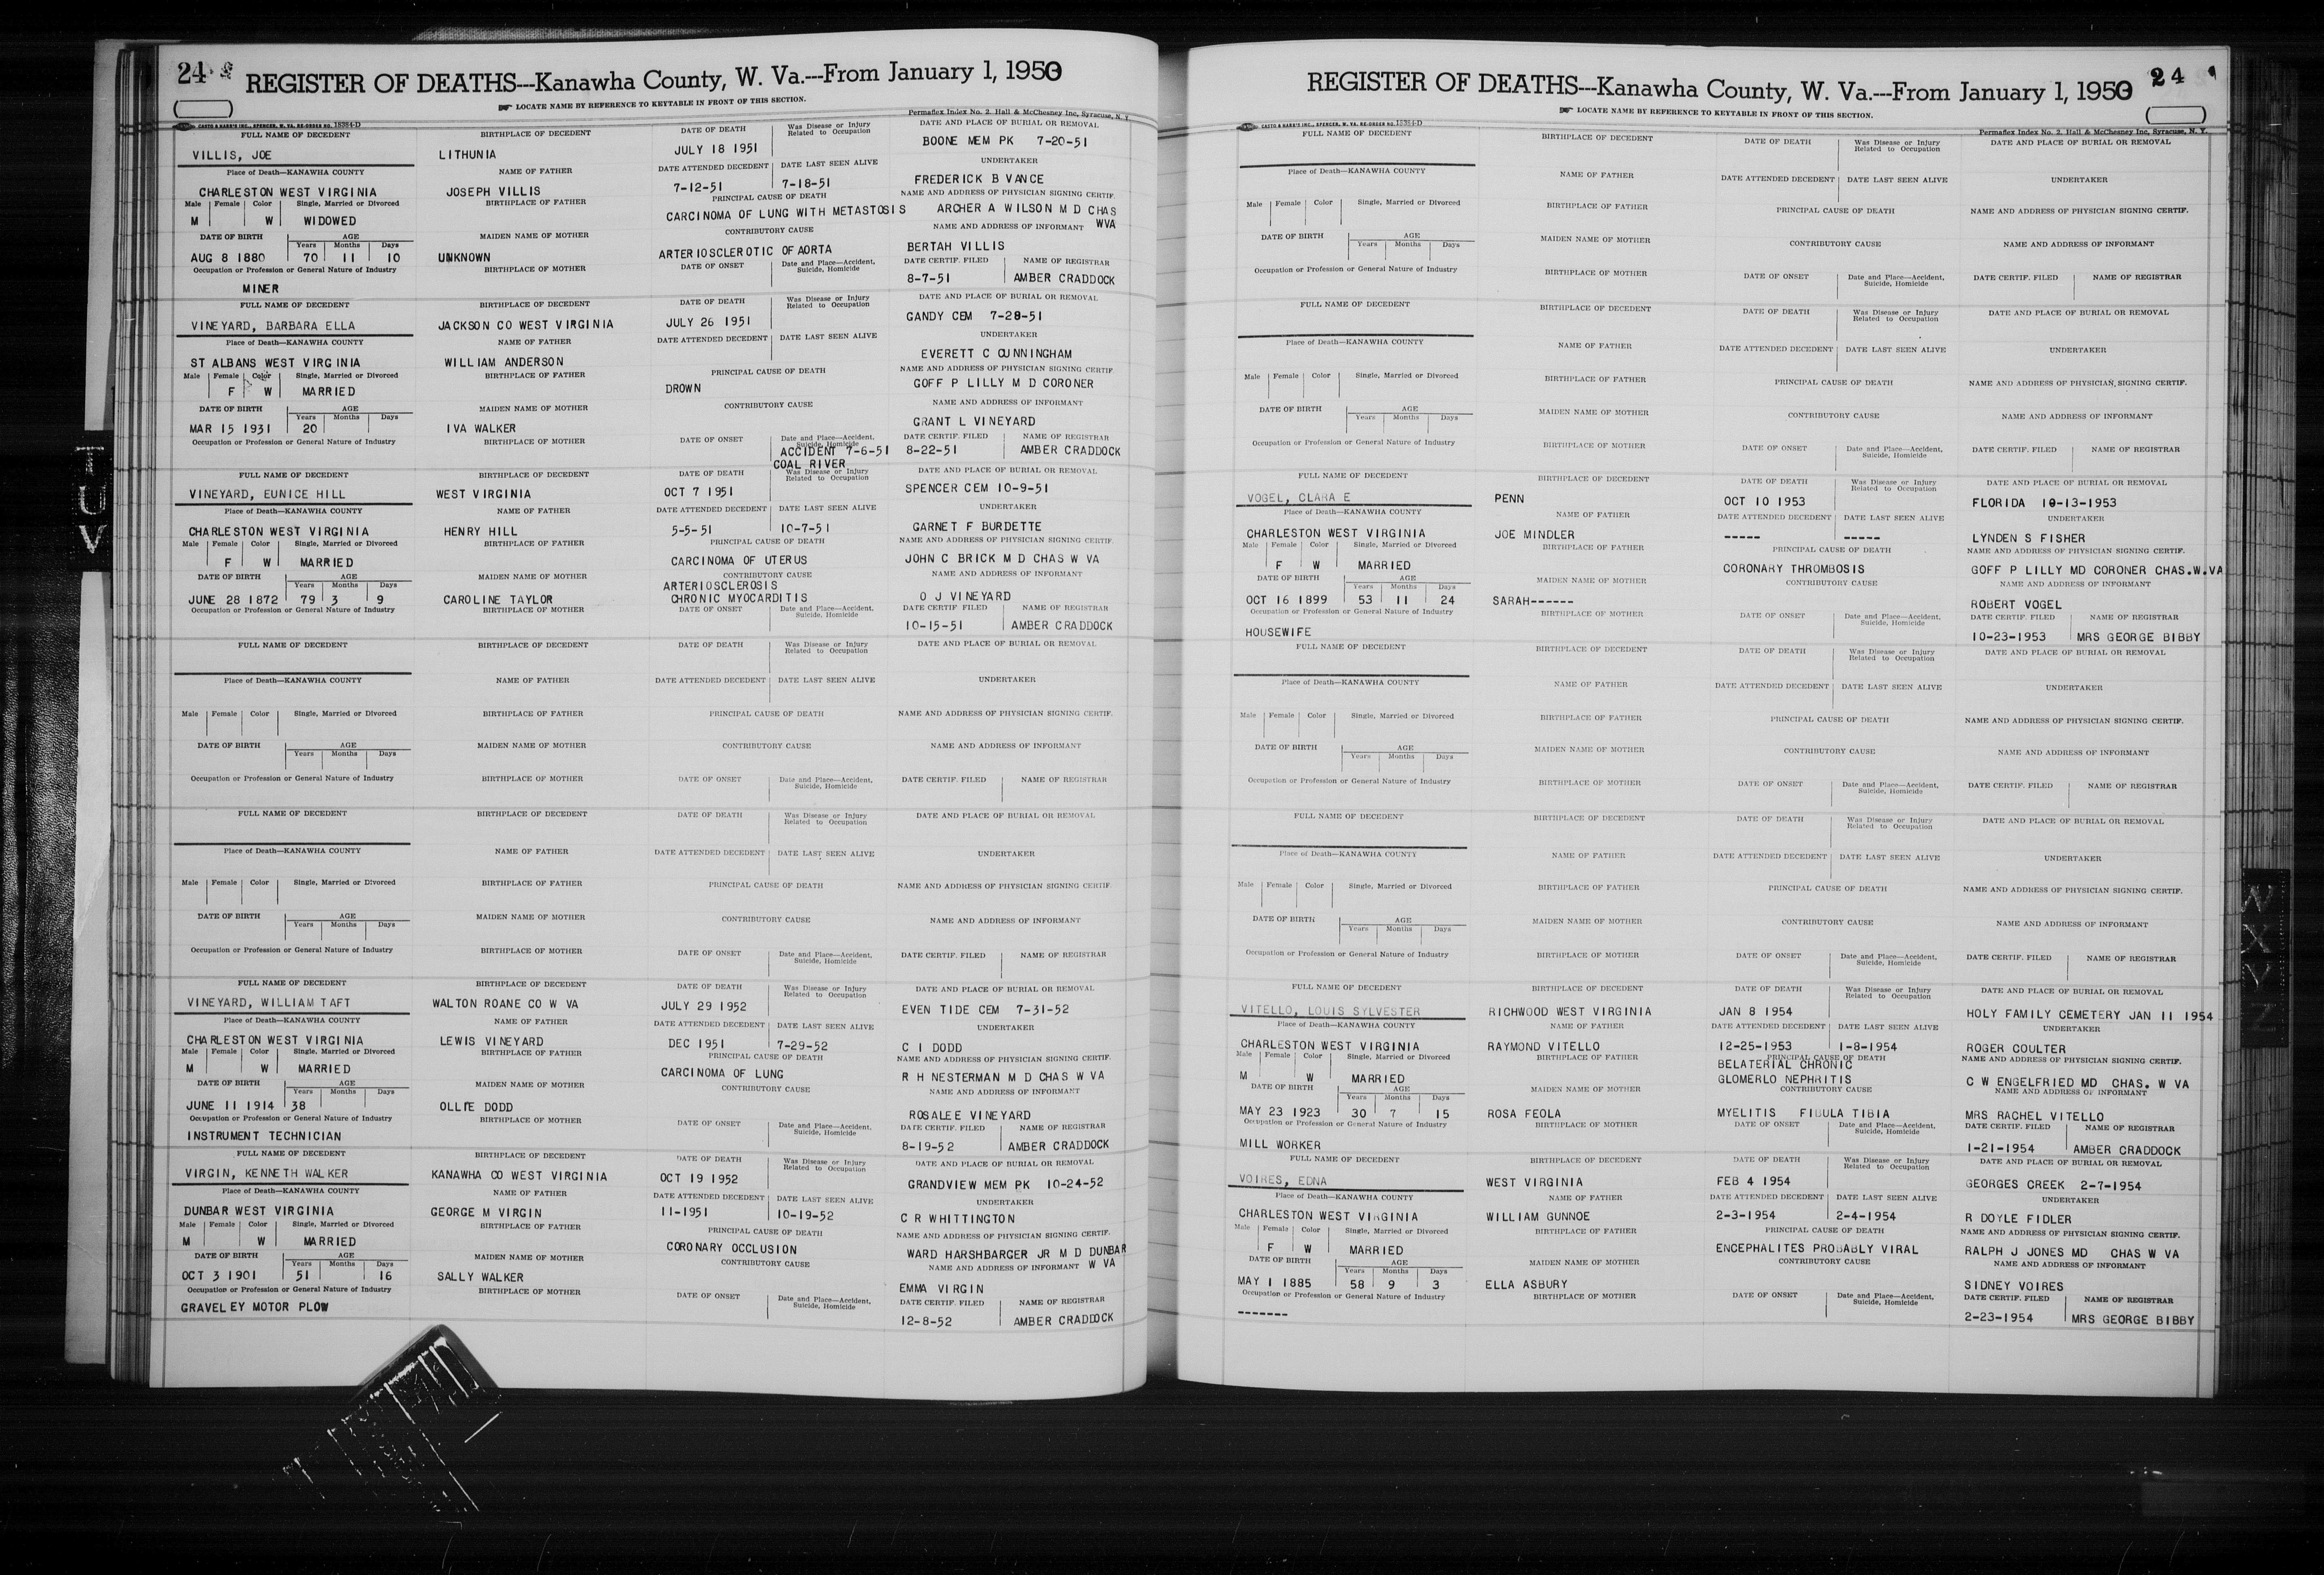 24
REGISTER OF DEATHS---Kanawha County, W. Va.---From January 1, 1950
LOCATE NAME BY REFERENCE TO KEYTABLE IN FRONT OF THIS SECTION.
CASTO & HARRIS INC., SPENCER, W. VA. RE-ORDER NO. 18384-D
Permaflex Index No. 2. Hall & McChesney Inc, Syracuse, N. Y.
FULL NAME OF DECEDENT BIRTHPLACE OF DECEDENT DATE OF DEATH Was Disease or Injury Related to Occupation DATE AND PLACE OF BURIAL OR REMOVAL
VILLIS, JOE LITHUNIA JULY 18 1951 BOONE MEM PK 7-20-51
Place of Death—KANAWHA COUNTY NAME OF FATHER DATE ATTENDED DECEDENT DATE LAST SEEN ALIVE UNDERTAKER
CHARLESTON WEST VIRGINIA JOSEPH VILLIS 7-12-51 7-18-51 FREDERICK B VANCE
Male Female Color Single, Married or Divorced BIRTHPLACE OF FATHER PRINCIPAL CAUSE OF DEATH NAME AND ADDRESS OF PHYSICIAN SIGNING CERTIF.
M W WIDOWED CARCINOMA OF LUNG WITH METASTOSIS ARCHER A WILSON M D CHAS WVA
DATE OF BIRTH AGE Years Months Days MAIDEN NAME OF MOTHER CONTRIBUTORY CAUSE NAME AND ADDRESS OF INFORMANT
AUG 8 1880 70 11 10 UNKNOWN ARTERIOSCLEROTIC OF AORTA BERTAH VILLIS
Occupation or Profession or General Nature of Industry BIRTHPLACE OF MOTHER DATE OF ONSET Date and Place—Accident, Suicide, Homicide DATE CERTIF. FILED NAME OF REGISTRAR
MINER 8-7-51 AMBER CRADDOCK
FULL NAME OF DECEDENT BIRTHPLACE OF DECEDENT DATE OF DEATH Was Disease or Injury Related to Occupation DATE AND PLACE OF BURIAL OR REMOVAL
VINEYARD, BARBARA ELLA JACKSON CO WEST VIRGINIA JULY 26 1951 GANDY CEM 7-28-51
Place of Death—KANAWHA COUNTY NAME OF FATHER DATE ATTENDED DECEDENT DATE LAST SEEN ALIVE UNDERTAKER
ST ALBANS WEST VIRGINIA WILLIAM ANDERSON EVERETT C CUNNINGHAM
Male Female Color Single, Married or Divorced BIRTHPLACE OF FATHER PRINCIPAL CAUSE OF DEATH NAME AND ADDRESS OF PHYSICIAN SIGNING CERTIF.
F W MARRIED DROWN GOFF P LILLY M D CORONER
DATE OF BIRTH AGE Years Months Days MAIDEN NAME OF MOTHER CONTRIBUTORY CAUSE NAME AND ADDRESS OF INFORMANT
MAR 15 1931 20 IVA WALKER GRANT L VINEYARD
Occupation or Profession or General Nature of Industry BIRTHPLACE OF MOTHER DATE OF ONSET Date and Place—Accident, Suicide, Homicide DATE CERTIF. FILED NAME OF REGISTRAR
ACCIDENT 7-6-51 8-22-51 AMBER CRADDOCK
COAL RIVER
FULL NAME OF DECEDENT BIRTHPLACE OF DECEDENT DATE OF DEATH Was Disease or Injury Related to Occupation DATE AND PLACE OF BURIAL OR REMOVAL
VINEYARD, EUNICE HILL WEST VIRGINIA OCT 7 1951 SPENCER CEM 10-9-51
Place of Death—KANAWHA COUNTY NAME OF FATHER DATE ATTENDED DECEDENT DATE LAST SEEN ALIVE UNDERTAKER
CHARLESTON WEST VIRGINIA HENRY HILL 5-5-51 10-7-51 GARNET F BURDETTE
Male Female Color Single, Married or Divorced BIRTHPLACE OF FATHER PRINCIPAL CAUSE OF DEATH NAME AND ADDRESS OF PHYSICIAN SIGNING CERTIF.
F W MARRIED CARCINOMA OF UTERUS JOHN C BRICK M D CHAS W VA
DATE OF BIRTH AGE Years Months Days MAIDEN NAME OF MOTHER CONTRIBUTORY CAUSE NAME AND ADDRESS OF INFORMANT
ARTERIOSCLEROSIS
JUNE 28 1872 79 3 9 CAROLINE TAYLOR CHRONIC MYOCARDITIS O J VINEYARD
Occupation or Profession or General Nature of Industry BIRTHPLACE OF MOTHER DATE OF ONSET Date and Place—Accident, Suicide, Homicide DATE CERTIF. FILED NAME OF REGISTRAR
10-15-51 AMBER CRADDOCK
FULL NAME OF DECEDENT BIRTHPLACE OF DECEDENT DATE OF DEATH Was Disease or Injury Related to Occupation DATE AND PLACE OF BURIAL OR REMOVAL
Place of Death—KANAWHA COUNTY NAME OF FATHER DATE ATTENDED DECEDENT DATE LAST SEEN ALIVE UNDERTAKER
Male Female Color Single, Married or Divorced BIRTHPLACE OF FATHER PRINCIPAL CAUSE OF DEATH NAME AND ADDRESS OF PHYSICIAN SIGNING CERTIF.
DATE OF BIRTH AGE Years Months Days MAIDEN NAME OF MOTHER CONTRIBUTORY CAUSE NAME AND ADDRESS OF INFORMANT
Occupation or Profession or General Nature of Industry BIRTHPLACE OF MOTHER DATE OF ONSET Date and Place—Accident, Suicide, Homicide DATE CERTIF. FILED NAME OF REGISTRAR
FULL NAME OF DECEDENT BIRTHPLACE OF DECEDENT DATE OF DEATH Was Disease or Injury Related to Occupation DATE AND PLACE OF BURIAL OR REMOVAL
Place of Death—KANAWHA COUNTY NAME OF FATHER DATE ATTENDED DECEDENT DATE LAST SEEN ALIVE UNDERTAKER
Male Female Color Single, Married or Divorced BIRTHPLACE OF FATHER PRINCIPAL CAUSE OF DEATH NAME AND ADDRESS OF PHYSICIAN SIGNING CERTIF.
DATE OF BIRTH AGE Years Months Days MAIDEN NAME OF MOTHER CONTRIBUTORY CAUSE NAME AND ADDRESS OF INFORMANT
Occupation or Profession or General Nature of Industry BIRTHPLACE OF MOTHER DATE OF ONSET Date and Place—Accident, Suicide, Homicide DATE CERTIF. FILED NAME OF REGISTRAR
FULL NAME OF DECEDENT BIRTHPLACE OF DECEDENT DATE OF DEATH Was Disease or Injury Related to Occupation DATE AND PLACE OF BURIAL OR REMOVAL
VINEYARD, WILLIAM TAFT WALTON ROANE CO W VA JULY 29 1952 EVEN TIDE CEM 7-31-52
Place of Death—KANAWHA COUNTY NAME OF FATHER DATE ATTENDED DECEDENT DATE LAST SEEN ALIVE UNDERTAKER
CHARLESTON WEST VIRGINIA LEWIS VINEYARD DEC 1951 7-29-52 C I DODD
Male Female Color Single, Married or Divorced BIRTHPLACE OF FATHER PRINCIPAL CAUSE OF DEATH NAME AND ADDRESS OF PHYSICIAN SIGNING CERTIF.
M W MARRIED CARCINOMA OF LUNG R H NESTERMAN M D CHAS W VA
DATE OF BIRTH AGE Years Months Days MAIDEN NAME OF MOTHER CONTRIBUTORY CAUSE NAME AND ADDRESS OF INFORMANT
JUNE 11 1914 38 OLLIE DODD ROSALEE VINEYARD
Occupation or Profession or General Nature of Industry BIRTHPLACE OF MOTHER DATE OF ONSET Date and Place—Accident, Suicide, Homicide DATE CERTIF. FILED NAME OF REGISTRAR
INSTRUMENT TECHNICIAN 8-19-52 AMBER CRADDOCK
FULL NAME OF DECEDENT BIRTHPLACE OF DECEDENT DATE OF DEATH Was Disease or Injury Related to Occupation DATE AND PLACE OF BURIAL OR REMOVAL
VIRGIN, KENNETH WALKER KANAWHA CO WEST VIRGINIA OCT 19 1952 GRANDVIEW MEM PK 10-24-52
Place of Death—KANAWHA COUNTY NAME OF FATHER DATE ATTENDED DECEDENT DATE LAST SEEN ALIVE UNDERTAKER
DUNBAR WEST VIRGINIA GEORGE M VIRGIN 11-1951 10-19-52 C R WHITTINGTON
Male Female Color Single, Married or Divorced BIRTHPLACE OF FATHER PRINCIPAL CAUSE OF DEATH NAME AND ADDRESS OF PHYSICIAN SIGNING CERTIF.
M W MARRIED CORONARY OCCLUSION WARD HARSHBARGER JR M D DUNBAR W VA
DATE OF BIRTH AGE Years Months Days MAIDEN NAME OF MOTHER CONTRIBUTORY CAUSE NAME AND ADDRESS OF INFORMANT
OCT 3 1901 51 16 SALLY WALKER EMMA VIRGIN
Occupation or Profession or General Nature of Industry BIRTHPLACE OF MOTHER DATE OF ONSET Date and Place—Accident, Suicide, Homicide DATE CERTIF. FILED NAME OF REGISTRAR
GRAVELEY MOTOR PLOW 12-8-52 AMBER CRADDOCK
T
U
V
REGISTER OF DEATHS---Kanawha County, W. Va.---From January 1, 1950
24
LOCATE NAME BY REFERENCE TO KEYTABLE IN FRONT OF THIS SECTION.
CASTO & HARRIS INC., SPENCER, W. VA. RE-ORDER NO. 18384-D
Permaflex Index No. 2. Hall & McChesney Inc, Syracuse, N. Y.
FULL NAME OF DECEDENT BIRTHPLACE OF DECEDENT DATE OF DEATH Was Disease or Injury Related to Occupation DATE AND PLACE OF BURIAL OR REMOVAL
Place of Death—KANAWHA COUNTY NAME OF FATHER DATE ATTENDED DECEDENT DATE LAST SEEN ALIVE UNDERTAKER
Male Female Color Single, Married or Divorced BIRTHPLACE OF FATHER PRINCIPAL CAUSE OF DEATH NAME AND ADDRESS OF PHYSICIAN SIGNING CERTIF.
DATE OF BIRTH AGE Years Months Days MAIDEN NAME OF MOTHER CONTRIBUTORY CAUSE NAME AND ADDRESS OF INFORMANT
Occupation or Profession or General Nature of Industry BIRTHPLACE OF MOTHER DATE OF ONSET Date and Place—Accident, Suicide, Homicide DATE CERTIF. FILED NAME OF REGISTRAR
FULL NAME OF DECEDENT BIRTHPLACE OF DECEDENT DATE OF DEATH Was Disease or Injury Related to Occupation DATE AND PLACE OF BURIAL OR REMOVAL
Place of Death—KANAWHA COUNTY NAME OF FATHER DATE ATTENDED DECEDENT DATE LAST SEEN ALIVE UNDERTAKER
Male Female Color Single, Married or Divorced BIRTHPLACE OF FATHER PRINCIPAL CAUSE OF DEATH NAME AND ADDRESS OF PHYSICIAN SIGNING CERTIF.
DATE OF BIRTH AGE Years Months Days MAIDEN NAME OF MOTHER CONTRIBUTORY CAUSE NAME AND ADDRESS OF INFORMANT
Occupation or Profession or General Nature of Industry BIRTHPLACE OF MOTHER DATE OF ONSET Date and Place—Accident, Suicide, Homicide DATE CERTIF. FILED NAME OF REGISTRAR
FULL NAME OF DECEDENT BIRTHPLACE OF DECEDENT DATE OF DEATH Was Disease or Injury Related to Occupation DATE AND PLACE OF BURIAL OR REMOVAL
VOGEL, CLARA E PENN OCT 10 1953 FLORIDA 10-13-1953
Place of Death—KANAWHA COUNTY NAME OF FATHER DATE ATTENDED DECEDENT DATE LAST SEEN ALIVE UNDERTAKER
CHARLESTON WEST VIRGINIA JOE MINDLER ----- ----- LYNDEN S FISHER
Male Female Color Single, Married or Divorced BIRTHPLACE OF FATHER PRINCIPAL CAUSE OF DEATH NAME AND ADDRESS OF PHYSICIAN SIGNING CERTIF.
F W MARRIED CORONARY THROMBOSIS GOFF P LILLY MD CORONER CHAS.W.VA
DATE OF BIRTH AGE Years Months Days MAIDEN NAME OF MOTHER CONTRIBUTORY CAUSE NAME AND ADDRESS OF INFORMANT
OCT 16 1899 53 11 24 SARAH------ ROBERT VOGEL
Occupation or Profession or General Nature of Industry BIRTHPLACE OF MOTHER DATE OF ONSET Date and Place—Accident, Suicide, Homicide DATE CERTIF. FILED NAME OF REGISTRAR
HOUSEWIFE 10-23-1953 MRS GEORGE BIBBY
FULL NAME OF DECEDENT BIRTHPLACE OF DECEDENT DATE OF DEATH Was Disease or Injury Related to Occupation DATE AND PLACE OF BURIAL OR REMOVAL
Place of Death—KANAWHA COUNTY NAME OF FATHER DATE ATTENDED DECEDENT DATE LAST SEEN ALIVE UNDERTAKER
Male Female Color Single, Married or Divorced BIRTHPLACE OF FATHER PRINCIPAL CAUSE OF DEATH NAME AND ADDRESS OF PHYSICIAN SIGNING CERTIF.
DATE OF BIRTH AGE Years Months Days MAIDEN NAME OF MOTHER CONTRIBUTORY CAUSE NAME AND ADDRESS OF INFORMANT
Occupation or Profession or General Nature of Industry BIRTHPLACE OF MOTHER DATE OF ONSET Date and Place—Accident, Suicide, Homicide DATE CERTIF. FILED NAME OF REGISTRAR
FULL NAME OF DECEDENT BIRTHPLACE OF DECEDENT DATE OF DEATH Was Disease or Injury Related to Occupation DATE AND PLACE OF BURIAL OR REMOVAL
Place of Death—KANAWHA COUNTY NAME OF FATHER DATE ATTENDED DECEDENT DATE LAST SEEN ALIVE UNDERTAKER
Male Female Color Single, Married or Divorced BIRTHPLACE OF FATHER PRINCIPAL CAUSE OF DEATH NAME AND ADDRESS OF PHYSICIAN SIGNING CERTIF.
DATE OF BIRTH AGE Years Months Days MAIDEN NAME OF MOTHER CONTRIBUTORY CAUSE NAME AND ADDRESS OF INFORMANT
Occupation or Profession or General Nature of Industry BIRTHPLACE OF MOTHER DATE OF ONSET Date and Place—Accident, Suicide, Homicide DATE CERTIF. FILED NAME OF REGISTRAR
FULL NAME OF DECEDENT BIRTHPLACE OF DECEDENT DATE OF DEATH Was Disease or Injury Related to Occupation DATE AND PLACE OF BURIAL OR REMOVAL
VITELLO, LOUIS SYLVESTER RICHWOOD WEST VIRGINIA JAN 8 1954 HOLY FAMILY CEMETERY JAN 11 1954
Place of Death—KANAWHA COUNTY NAME OF FATHER DATE ATTENDED DECEDENT DATE LAST SEEN ALIVE UNDERTAKER
CHARLESTON WEST VIRGINIA RAYMOND VITELLO 12-25-1953 1-8-1954 ROGER COULTER
Male Female Color Single, Married or Divorced BIRTHPLACE OF FATHER PRINCIPAL CAUSE OF DEATH NAME AND ADDRESS OF PHYSICIAN SIGNING CERTIF.
BELATERIAL CHRONIC
M W MARRIED GLOMERLO NEPHRITIS C W ENGELFRIED MD CHAS. W VA
DATE OF BIRTH AGE Years Months Days MAIDEN NAME OF MOTHER CONTRIBUTORY CAUSE NAME AND ADDRESS OF INFORMANT
MAY 23 1923 30 7 15 ROSA FEOLA MYELITIS FIBULA TIBIA MRS RACHEL VITELLO
Occupation or Profession or General Nature of Industry BIRTHPLACE OF MOTHER DATE OF ONSET Date and Place—Accident, Suicide, Homicide DATE CERTIF. FILED NAME OF REGISTRAR
MILL WORKER 1-21-1954 AMBER CRADDOCK
FULL NAME OF DECEDENT BIRTHPLACE OF DECEDENT DATE OF DEATH Was Disease or Injury Related to Occupation DATE AND PLACE OF BURIAL OR REMOVAL
VOIRES, EDNA WEST VIRGINIA FEB 4 1954 GEORGES CREEK 2-7-1954
Place of Death—KANAWHA COUNTY NAME OF FATHER DATE ATTENDED DECEDENT DATE LAST SEEN ALIVE UNDERTAKER
CHARLESTON WEST VIRGINIA WILLIAM GUNNOE 2-3-1954 2-4-1954 R DOYLE FIDLER
Male Female Color Single, Married or Divorced BIRTHPLACE OF FATHER PRINCIPAL CAUSE OF DEATH NAME AND ADDRESS OF PHYSICIAN SIGNING CERTIF.
F W MARRIED ENCEPHALITES PROBABLY VIRAL RALPH J JONES MD CHAS W VA
DATE OF BIRTH AGE Years Months Days MAIDEN NAME OF MOTHER CONTRIBUTORY CAUSE NAME AND ADDRESS OF INFORMANT
MAY 1 1885 58 9 3 ELLA ASBURY SIDNEY VOIRES
Occupation or Profession or General Nature of Industry BIRTHPLACE OF MOTHER DATE OF ONSET Date and Place—Accident, Suicide, Homicide DATE CERTIF. FILED NAME OF REGISTRAR
------- 2-23-1954 MRS GEORGE BIBBY
W
X
Y
Z